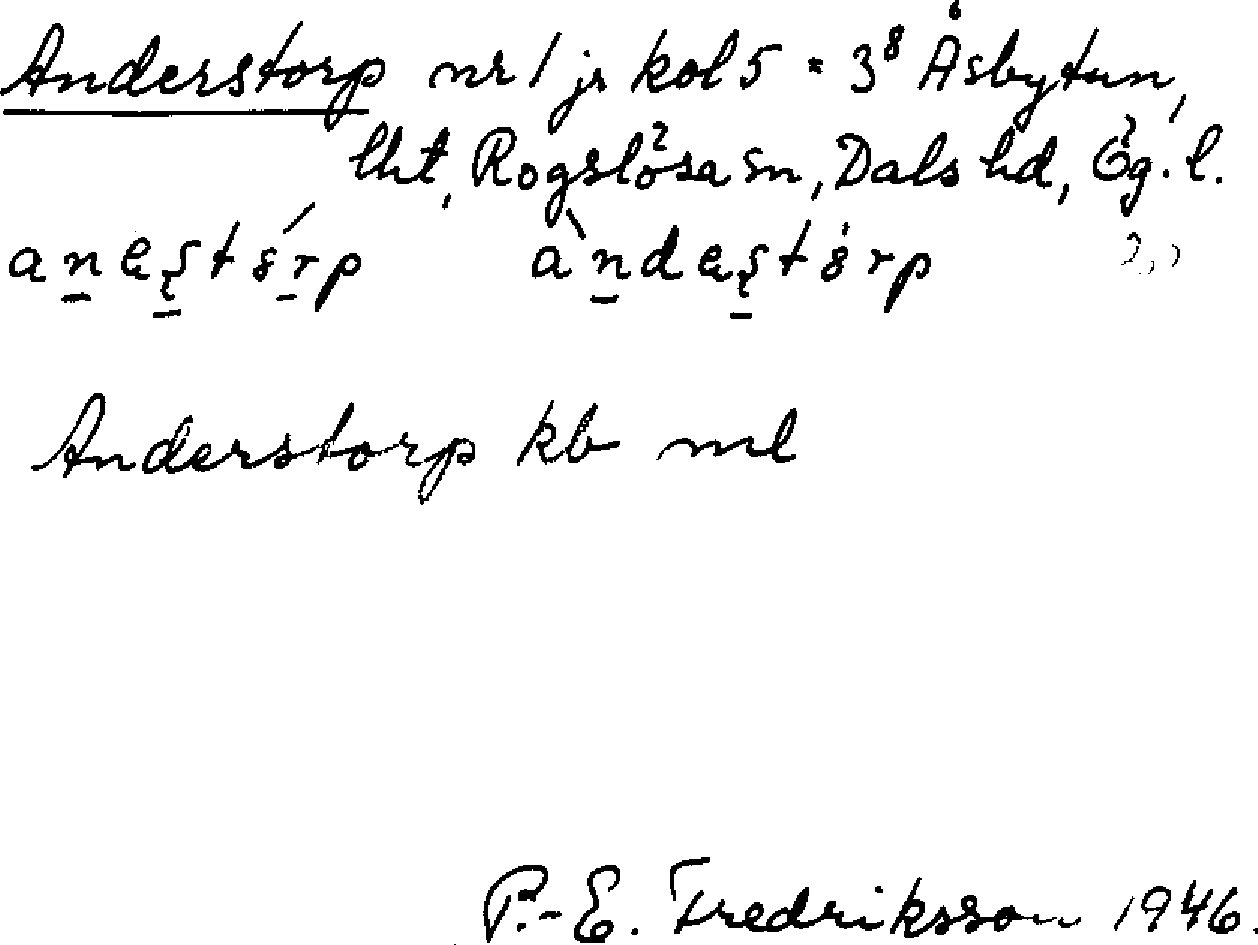 Anderstorp nr 1 jr kol 5 = 3⁸ Åsbytun,
lht, Rogslösa sn, Dals hd, Ög. l.
Anderstorp kb ml
P.-E. Fredriksson 1946.